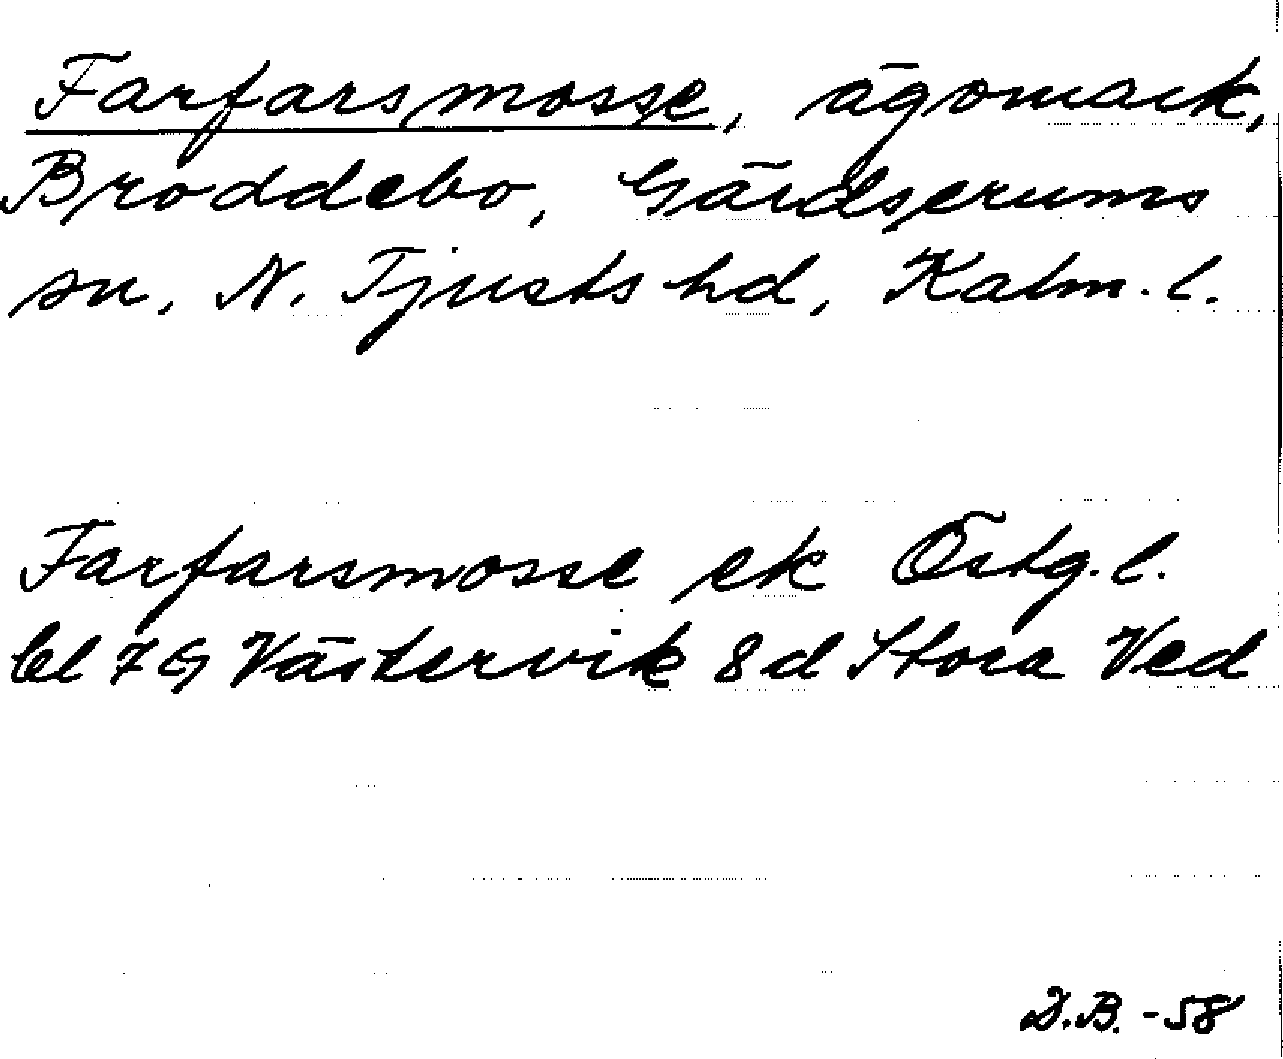 Farfarsmosse, ägomark,
Broddebo, Gärdserums
sn, N. Tjusts hd, Kalm. l.
Farfarsmosse ek Östg. l.
bl 7 G Västervik 8 d Stora Ved
D.B. -58